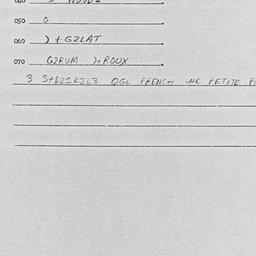 050 0
060 ) + G2LAT
070 G2RUM )+ROUX
3 S+D2SK2L3 QGL FRENCH UNE PETITE